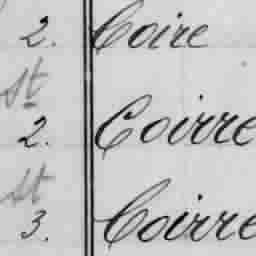 2. Coire
St
2. Coirre
St
3. Coirre